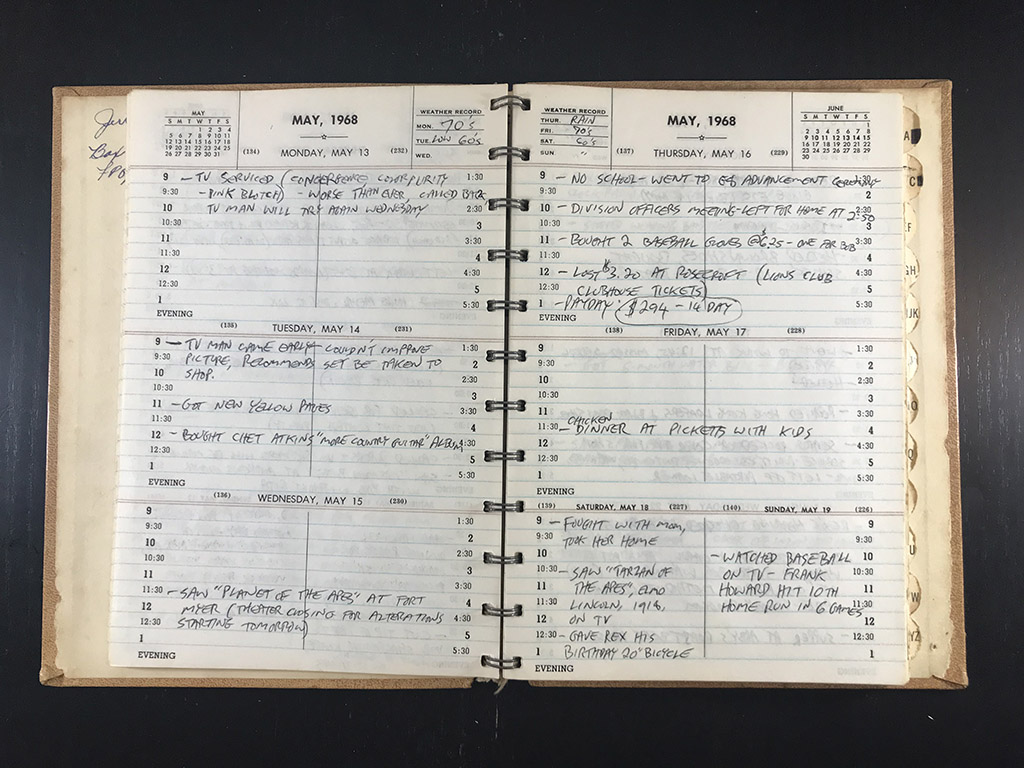 Box
MAY
S M T W T F S
1 2 3 4
5 6 7 8 9 10 11
12 13 14 15 16 17 18
19 20 21 22 23 24 25
26 27 28 29 30 31
MAY, 1968
WEATHER RECORD
MON. 70's
TUE. LOW 60's
WED.
(134) MONDAY, MAY 13 (232)
9 - TV SERVICED (CONVERGENCE COLOR PURITY 1:30
9:30 - PINK BLOTCH) - WORSE THAN EVER, CALLED BACK 2
10 TV MAN WILL TRY AGAIN WEDNESDAY 2:30
10:30 3
11 3:30
11:30 4
12 4:30
12:30 5
1 5:30
EVENING
(135) TUESDAY, MAY 14 (231)
9 - TV MAN CAME EARLY - COULDN'T IMPROVE 1:30
9:30 PICTURE, RECOMMENDS SET BE TAKEN TO 2
10 SHOP. 2:30
10:30 3
11 - GOT NEW YELLOW PAGES 3:30
11:30 4
12 - BOUGHT CHET ATKINS "MORE COUNTRY GUITAR" ALBUM 4:30
12:30 5
1 5:30
EVENING
(136) WEDNESDAY, MAY 15 (230)
9 1:30
9:30 2
10 2:30
10:30 3
11 3:30
11:30 - SAW "PLANET OF THE APES" AT FORT 4
12 MYER (THEATER CLOSING FOR ALTERATIONS 4:30
12:30 STARTING TOMORROW) 5
1 5:30
EVENING
WEATHER RECORD
THUR. RAIN
FRI. 70's
SAT. 60's
SUN "
MAY, 1968
JUNE
S M T W T F S
1
2 3 4 5 6 7 8
9 10 11 12 13 14 15
16 17 18 19 20 21 22
23 24 25 26 27 28 29
30
(137) THURSDAY, MAY 16 (229)
9 - NO SCHOOL - WENT TO ADVANCEMENT CEREMONY 1:30
9:30 2
10 - DIVISION OFFICERS MEETING - LEFT FOR HOME AT 2:50 2:30
10:30 3
11 - BOUGHT 2 BASEBALL GLOVES @ $6.25 - ONE FOR BOB 3:30
11:30 4
12 - LOST $3.20 AT ROSECROFT (LIONS CLUB 4:30
12:30 CLUBHOUSE TICKETS) 5
1 - PAYDAY: $294 - 14 DAY 5:30
EVENING
(138) FRIDAY, MAY 17 (228)
9 1:30
9:30 2
10 2:30
10:30 3
11 3:30
CHICKEN
11:30 - DINNER AT PICKETTS WITH KIDS 4
12 4:30
12:30 5
1 5:30
EVENING
(139) SATURDAY, MAY 18 (227)
9 - FOUGHT WITH MOM,
9:30 TOOK HER HOME
10
10:30 - SAW "TARZAN OF
11 THE APES", ELMO
11:30 LINCOLN, 1918,
12 ON TV
12:30 - GAVE REX HIS
1 BIRTHDAY 20" BICYCLE
EVENING
(140) SUNDAY, MAY 19 (226)
9
9:30
- WATCHED BASEBALL 10
ON TV - FRANK 10:30
HOWARD HIT 10TH 11
HOME RUN IN 6 GAMES 11:30
12
12:30
1
A
C
EF
GH
IJK
O
U
W
YZ